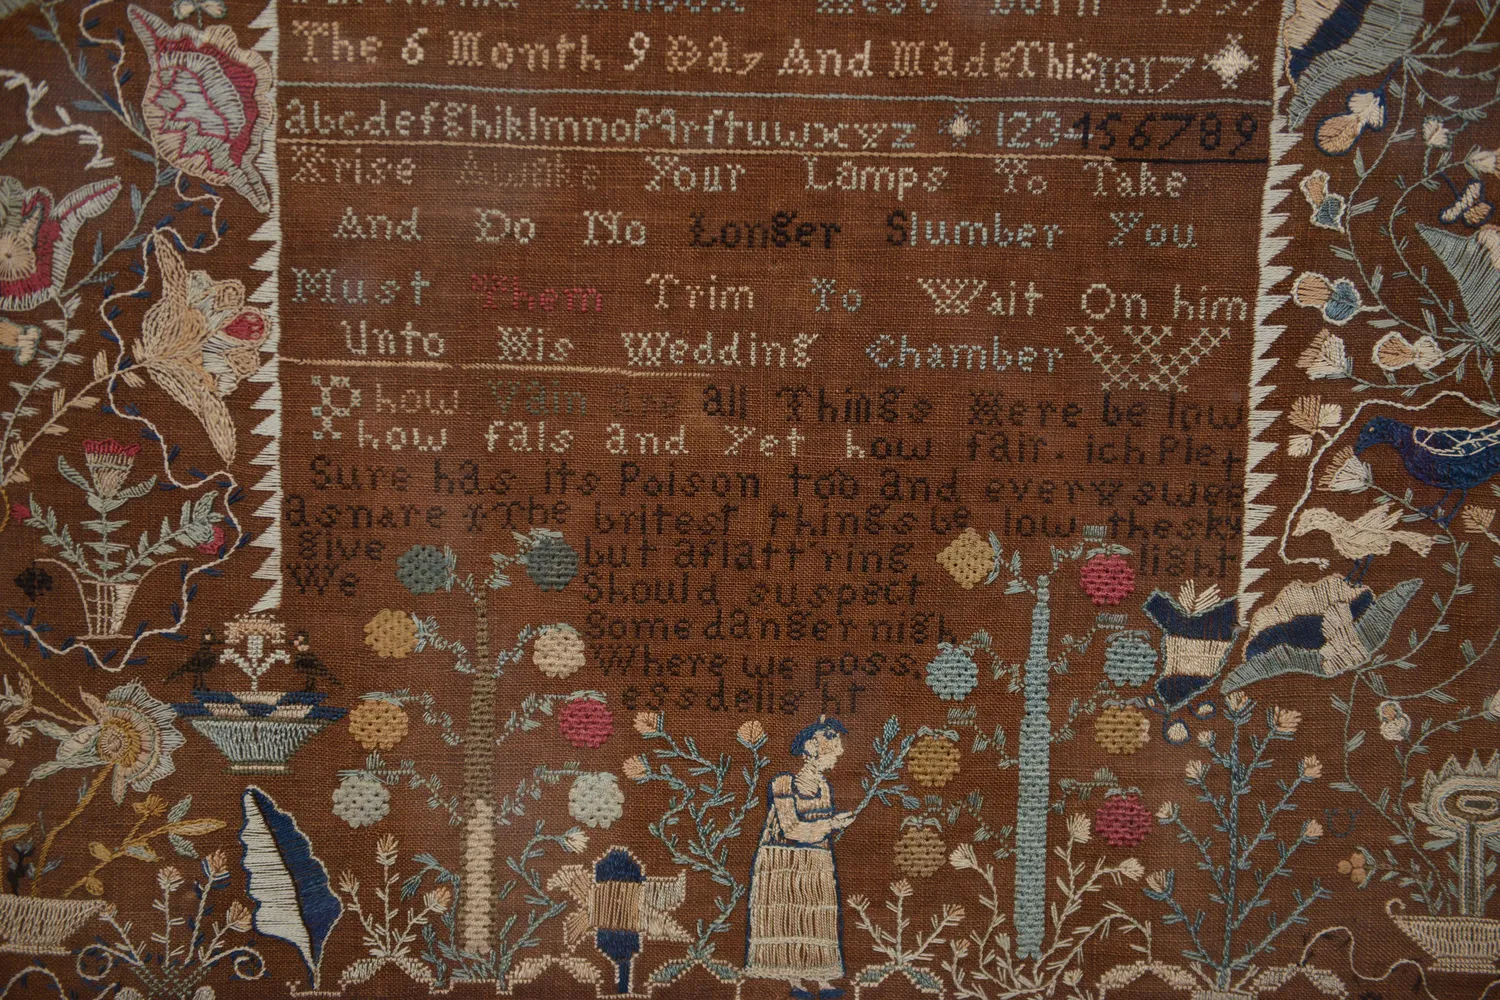 West Born
The 6 Month 9 Day And Made This 1817
abcdefghiklmnopqrſtuwxyz 123456789
Arise Awake Your Lamps To Take
And Do No Longer Slumber You
Must Them Trim To Wait On him
Unto His Wedding Chamber
O how Vain are all Things Here be low
how fals and Yet how fair. ich Plet
Sure has its Poison too and every swee
a snare The britest things be low the sky
give but a flatt'ring light
We Should suspect
Some danger nigh
Where we poss,
ess delight